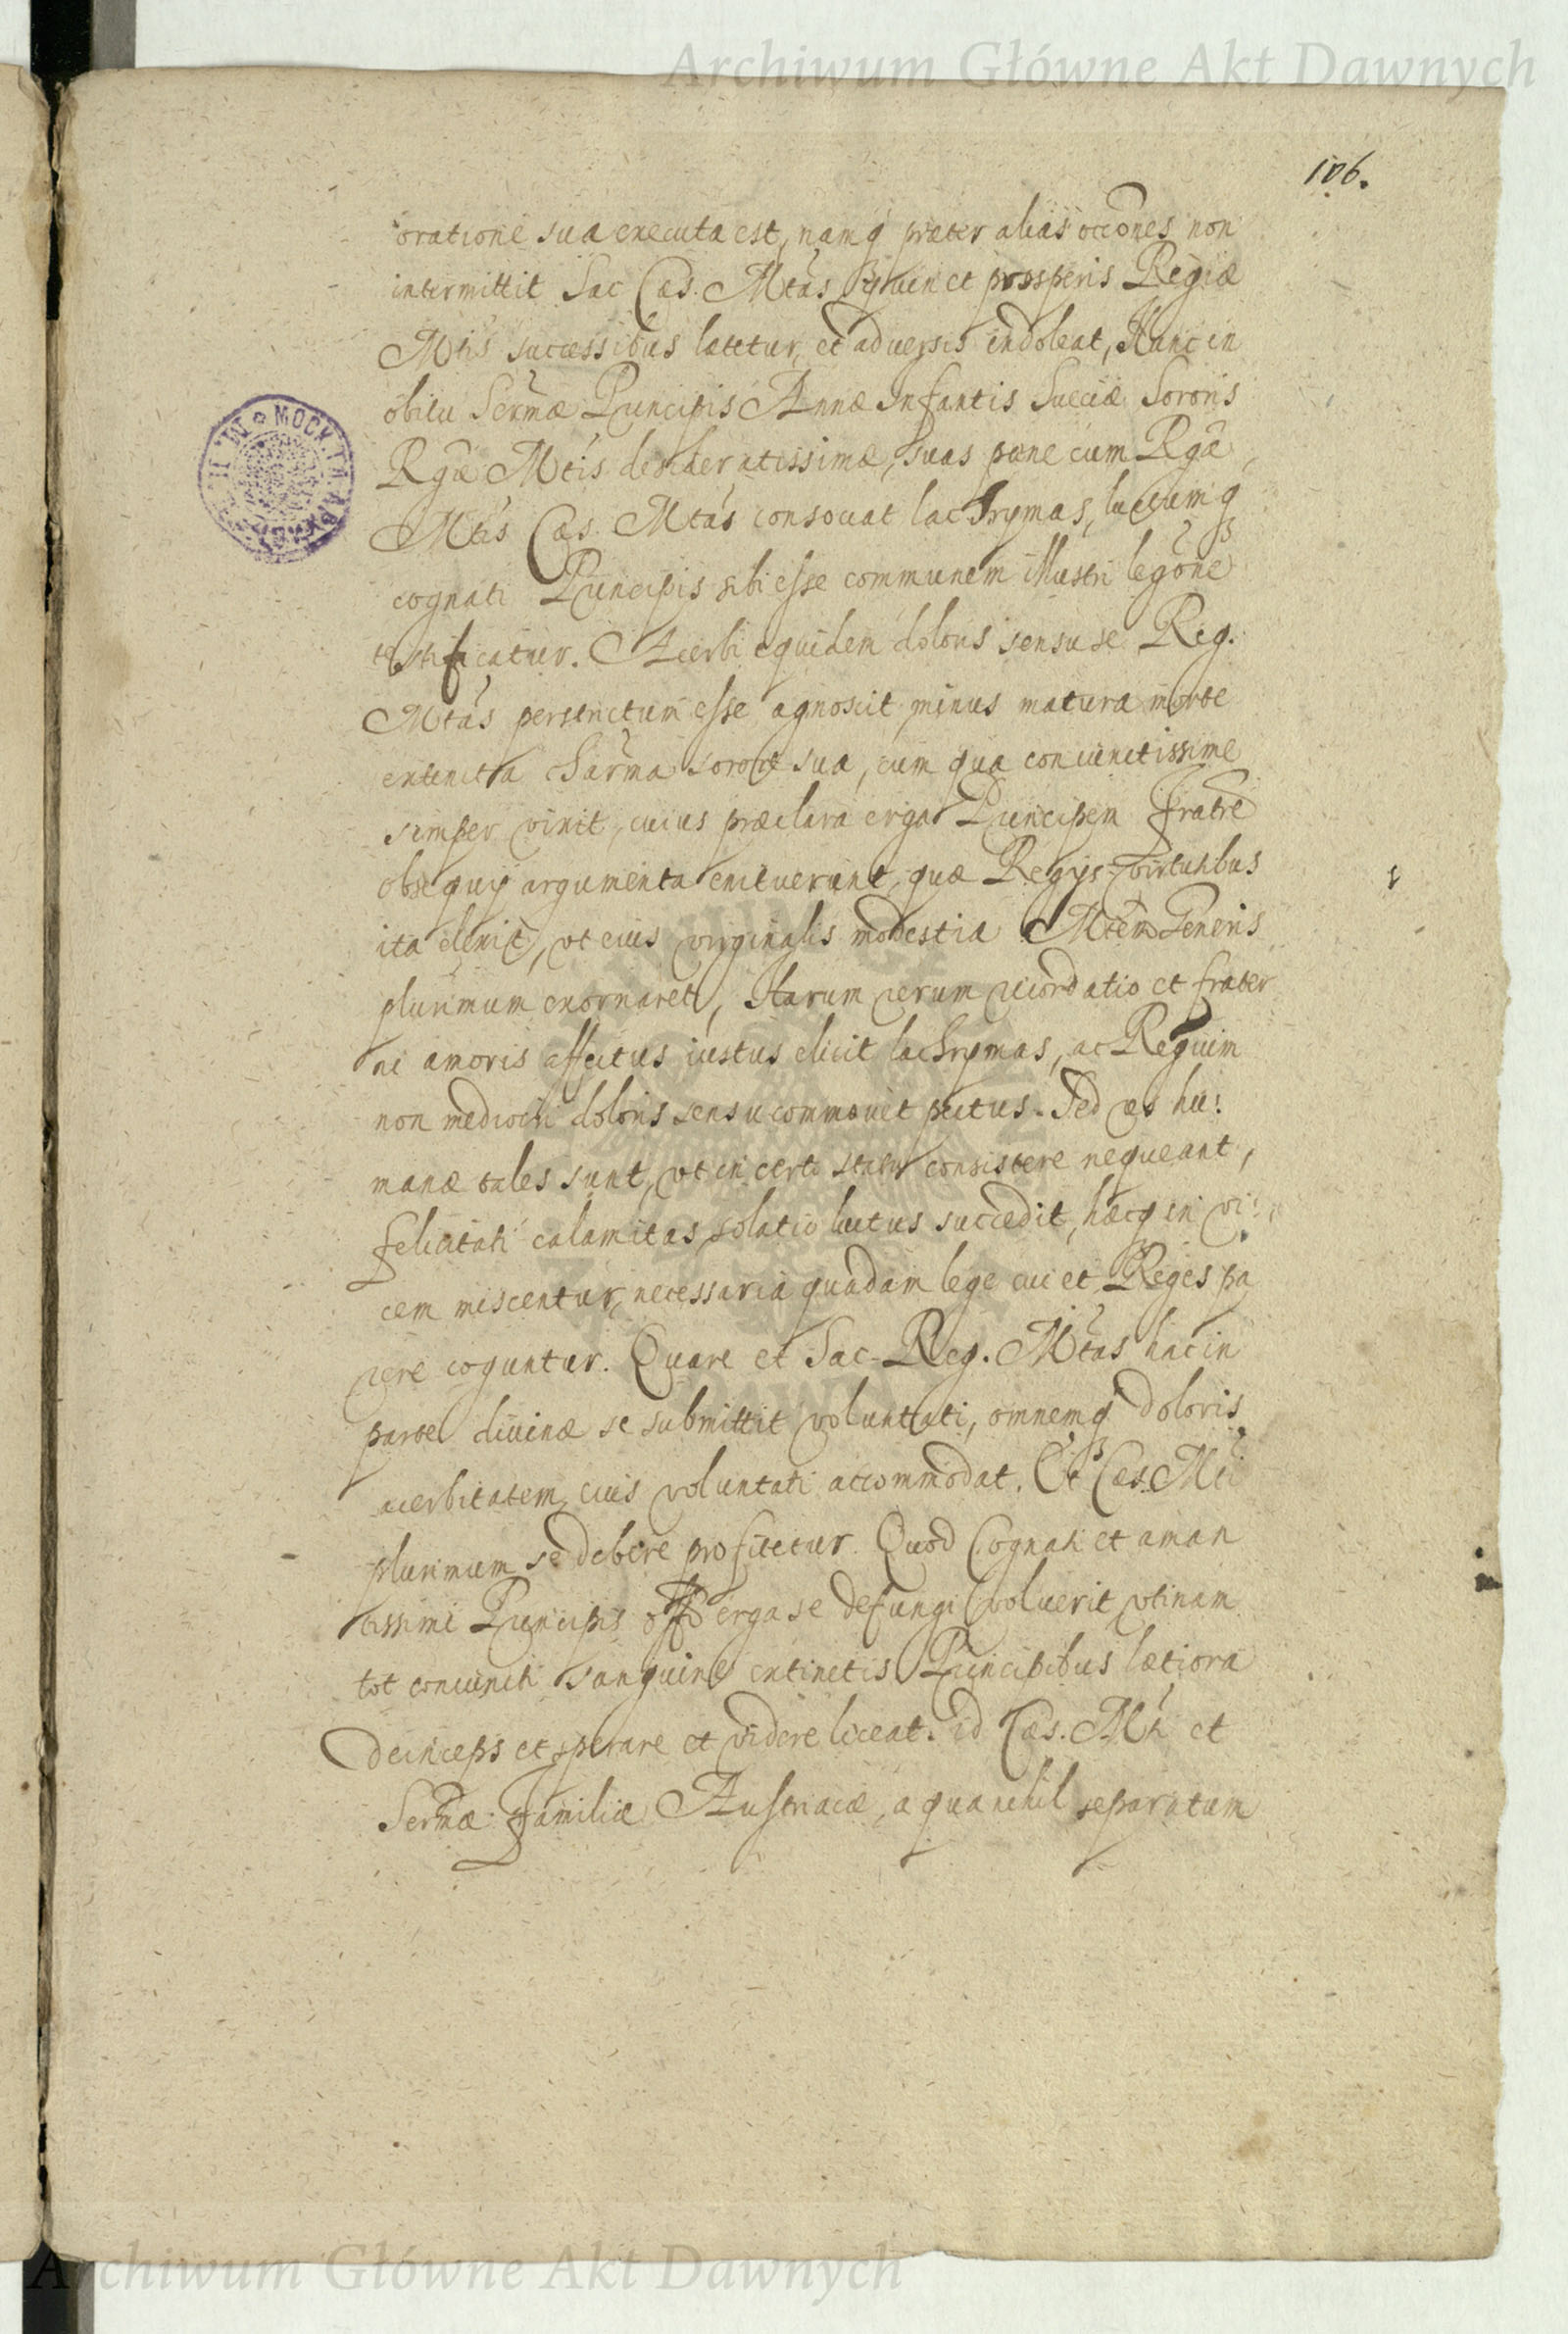 Archiwum Główne Akt Dawnych
106.
oratione sua executa est, namq₃ præter alias occōnes non
intermittit Sac Cæs. Mtas quin et prosperis Regiæ
Mtis successibus lætetur, et adversis indoleat, Nunc in
obitu Sermæ Principis Annæ Infantis Sueciæ Sororis
Rgæ Mtis desideratissimæ, suas pene cum Rgæ
Mtis Cæs. Mtas consociat lachrymas, luctumq₃
cognati Principis sibi esse communem illustri legōne
testificatur. Acerbi equidem doloris sensu se Reg.
Mtas perstrictum esse agnoscit minus matura morte
extincta Sarma sorore sua, cum qua coniunctissime
semper vixit, cuius præclara erga Principem fratrē
obsequij argumenta enituerunt, quæ Regijs virtutibus
ita eluxit, vt eius virginalis modestia Mtem Generis
plurimum exornaret, Harum rerum recordatio et frater
ni amoris affectus iustus elicit lachrymas, ac Regium
non mediocri doloris sensu commouet pectus. Sed res hu:
manæ tales sunt, vt in certo statu consistere nequeant,
felicitati calamitas solatio luctus succedit, hæcq₃ in vi:
cem miscentur, necessaria quadam lege cui et Reges pa
rere coguntur. Quare et Sac. Reg. Mtas hac in
parte diuinæ se submittit voluntati, omnemq₃ doloris
acerbitatem eius voluntati accommodat. Et Cæs. Mti
plurimum se debere profitetur. Quod Cognati et aman
tissimi Principis offo erga se defungi voluerit vtinam
tot coniuncti sanguine extinctis Principibus lætiora
deinceps et sperare et videre liceat. id Cæs. Mti et
Sermæ Familiæ Austriacæ, a qua nihil separatum
Archiwum Główne Akt Dawnych